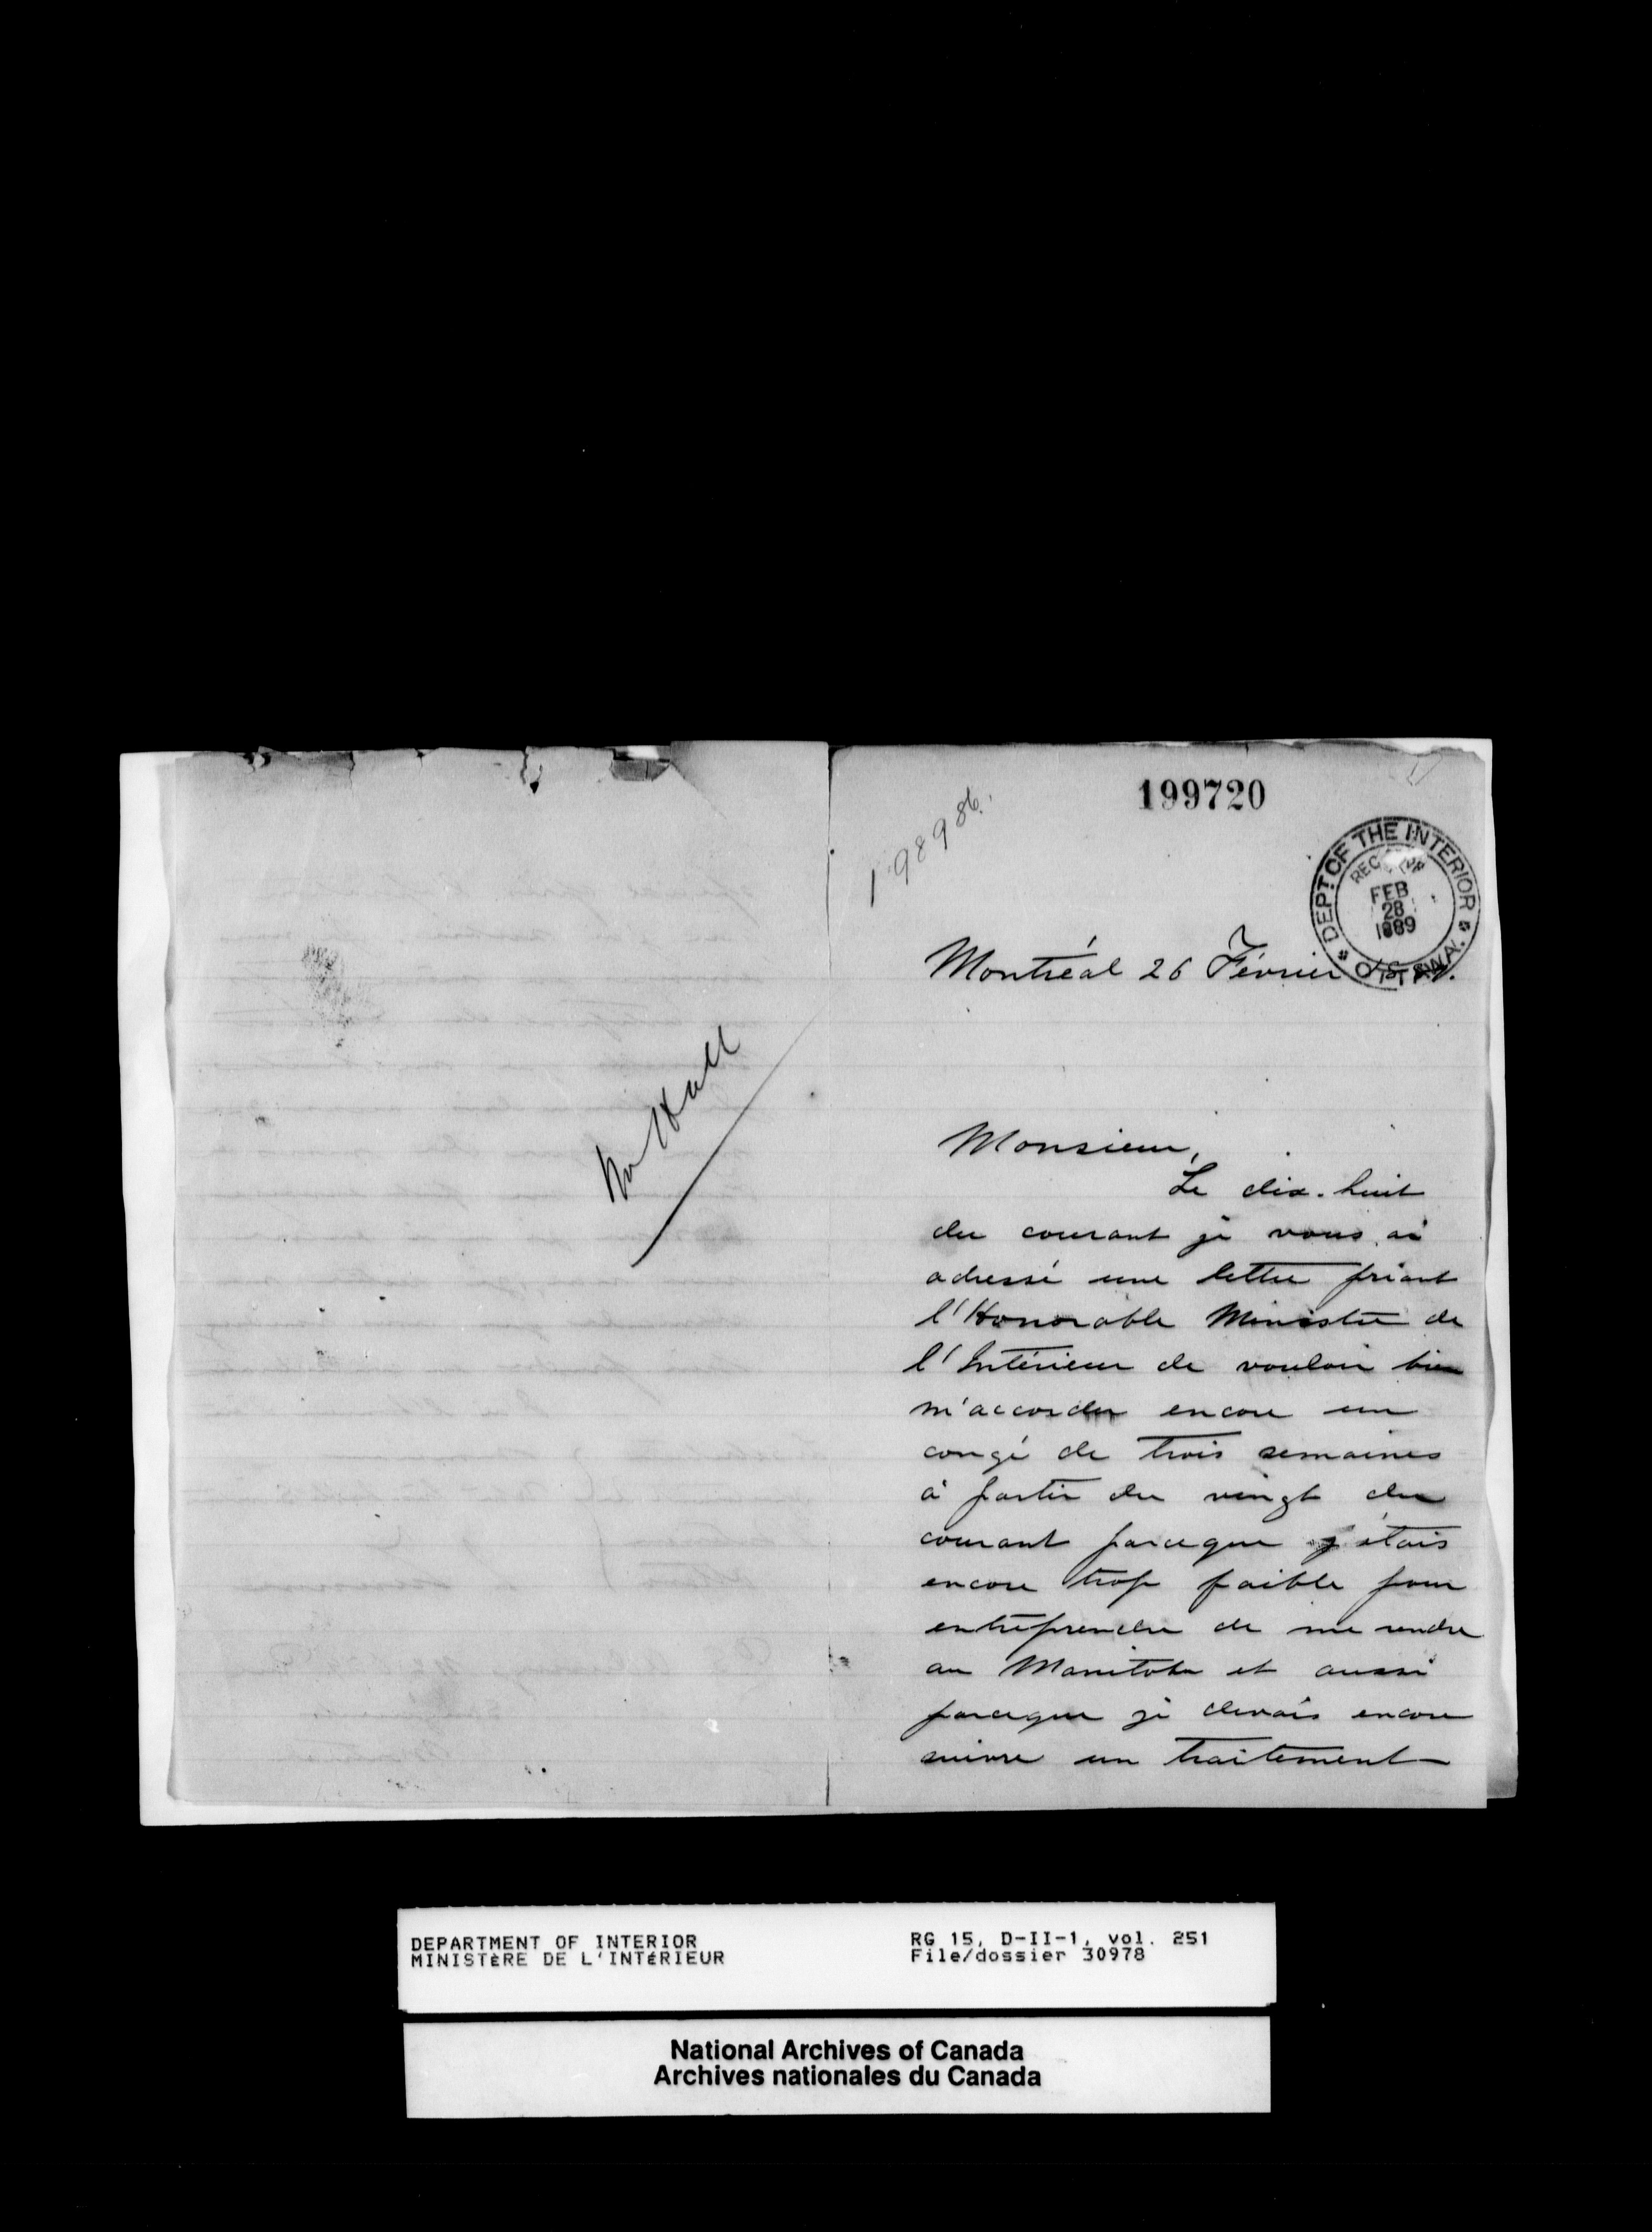 Mr Hall
199720
198986.
DEPT OF THE INTERIOR
FEB
28
1889
OTTAWA.
Montréal 26 Février
Monsieur,
Le dix-huit
du courant je vous ai
adressé une lettre priant
l'Honorable Ministre de
l'Intérieur de vouloir bien
m'accorder encore un
congé de trois semaines
à partir du vingt du
courant parceque j'étais
encore trop faible pour
entreprendre de me rendre
au Manitoba et aussi
parceque je devais encore
suivre un traitement
DEPARTMENT OF INTERIOR
MINISTÈRE DE L'INTÉRIEUR
RG 15, D-II-1, vol. 251
File/dossier 30978
National Archives of Canada
Archives nationales du Canada